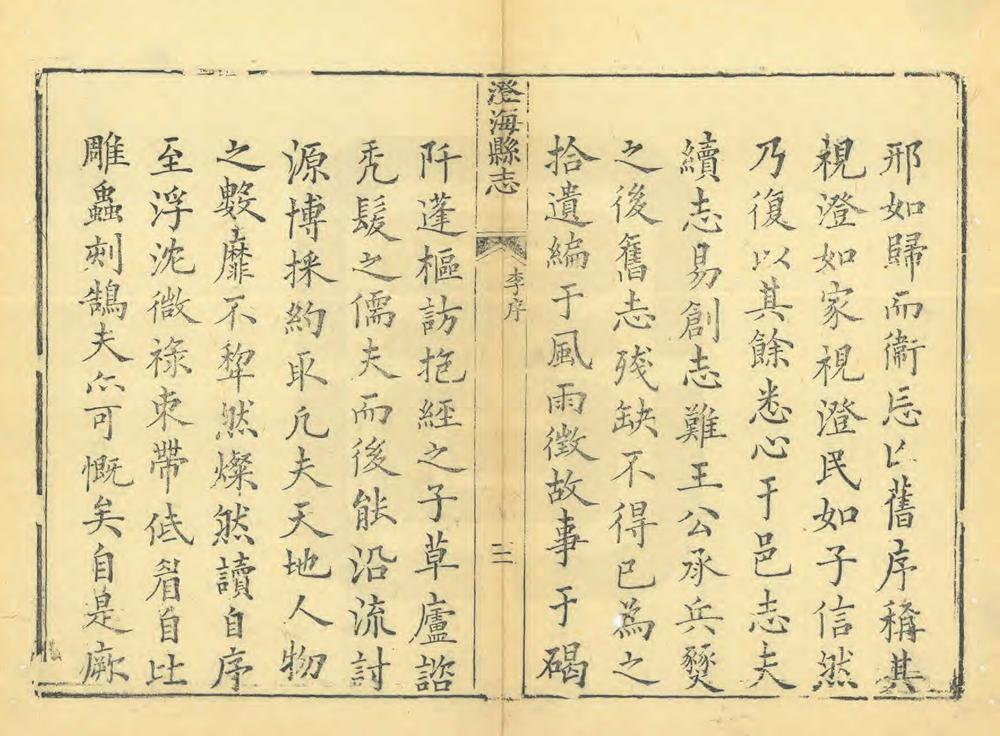 邢如歸而衞忘亾舊序稱其
視澄如家視澄民如子信然
乃復以其餘悉心于邑志夫
續志易創志難王公承兵燹
之後舊志殘缺不得已為之
拾遺編于風雨徵故事于碣
澄海縣志
李序
二
阡蓬樞訪抱經之子草廬諮
禿髮之儒夫而後能沿流討
源博採約取凢夫天地人物
之數靡不犂然燦然讀自序
至浮沈微祿束帶低眉自比
雕蟲刻鵠夫亦可慨矣自是厥